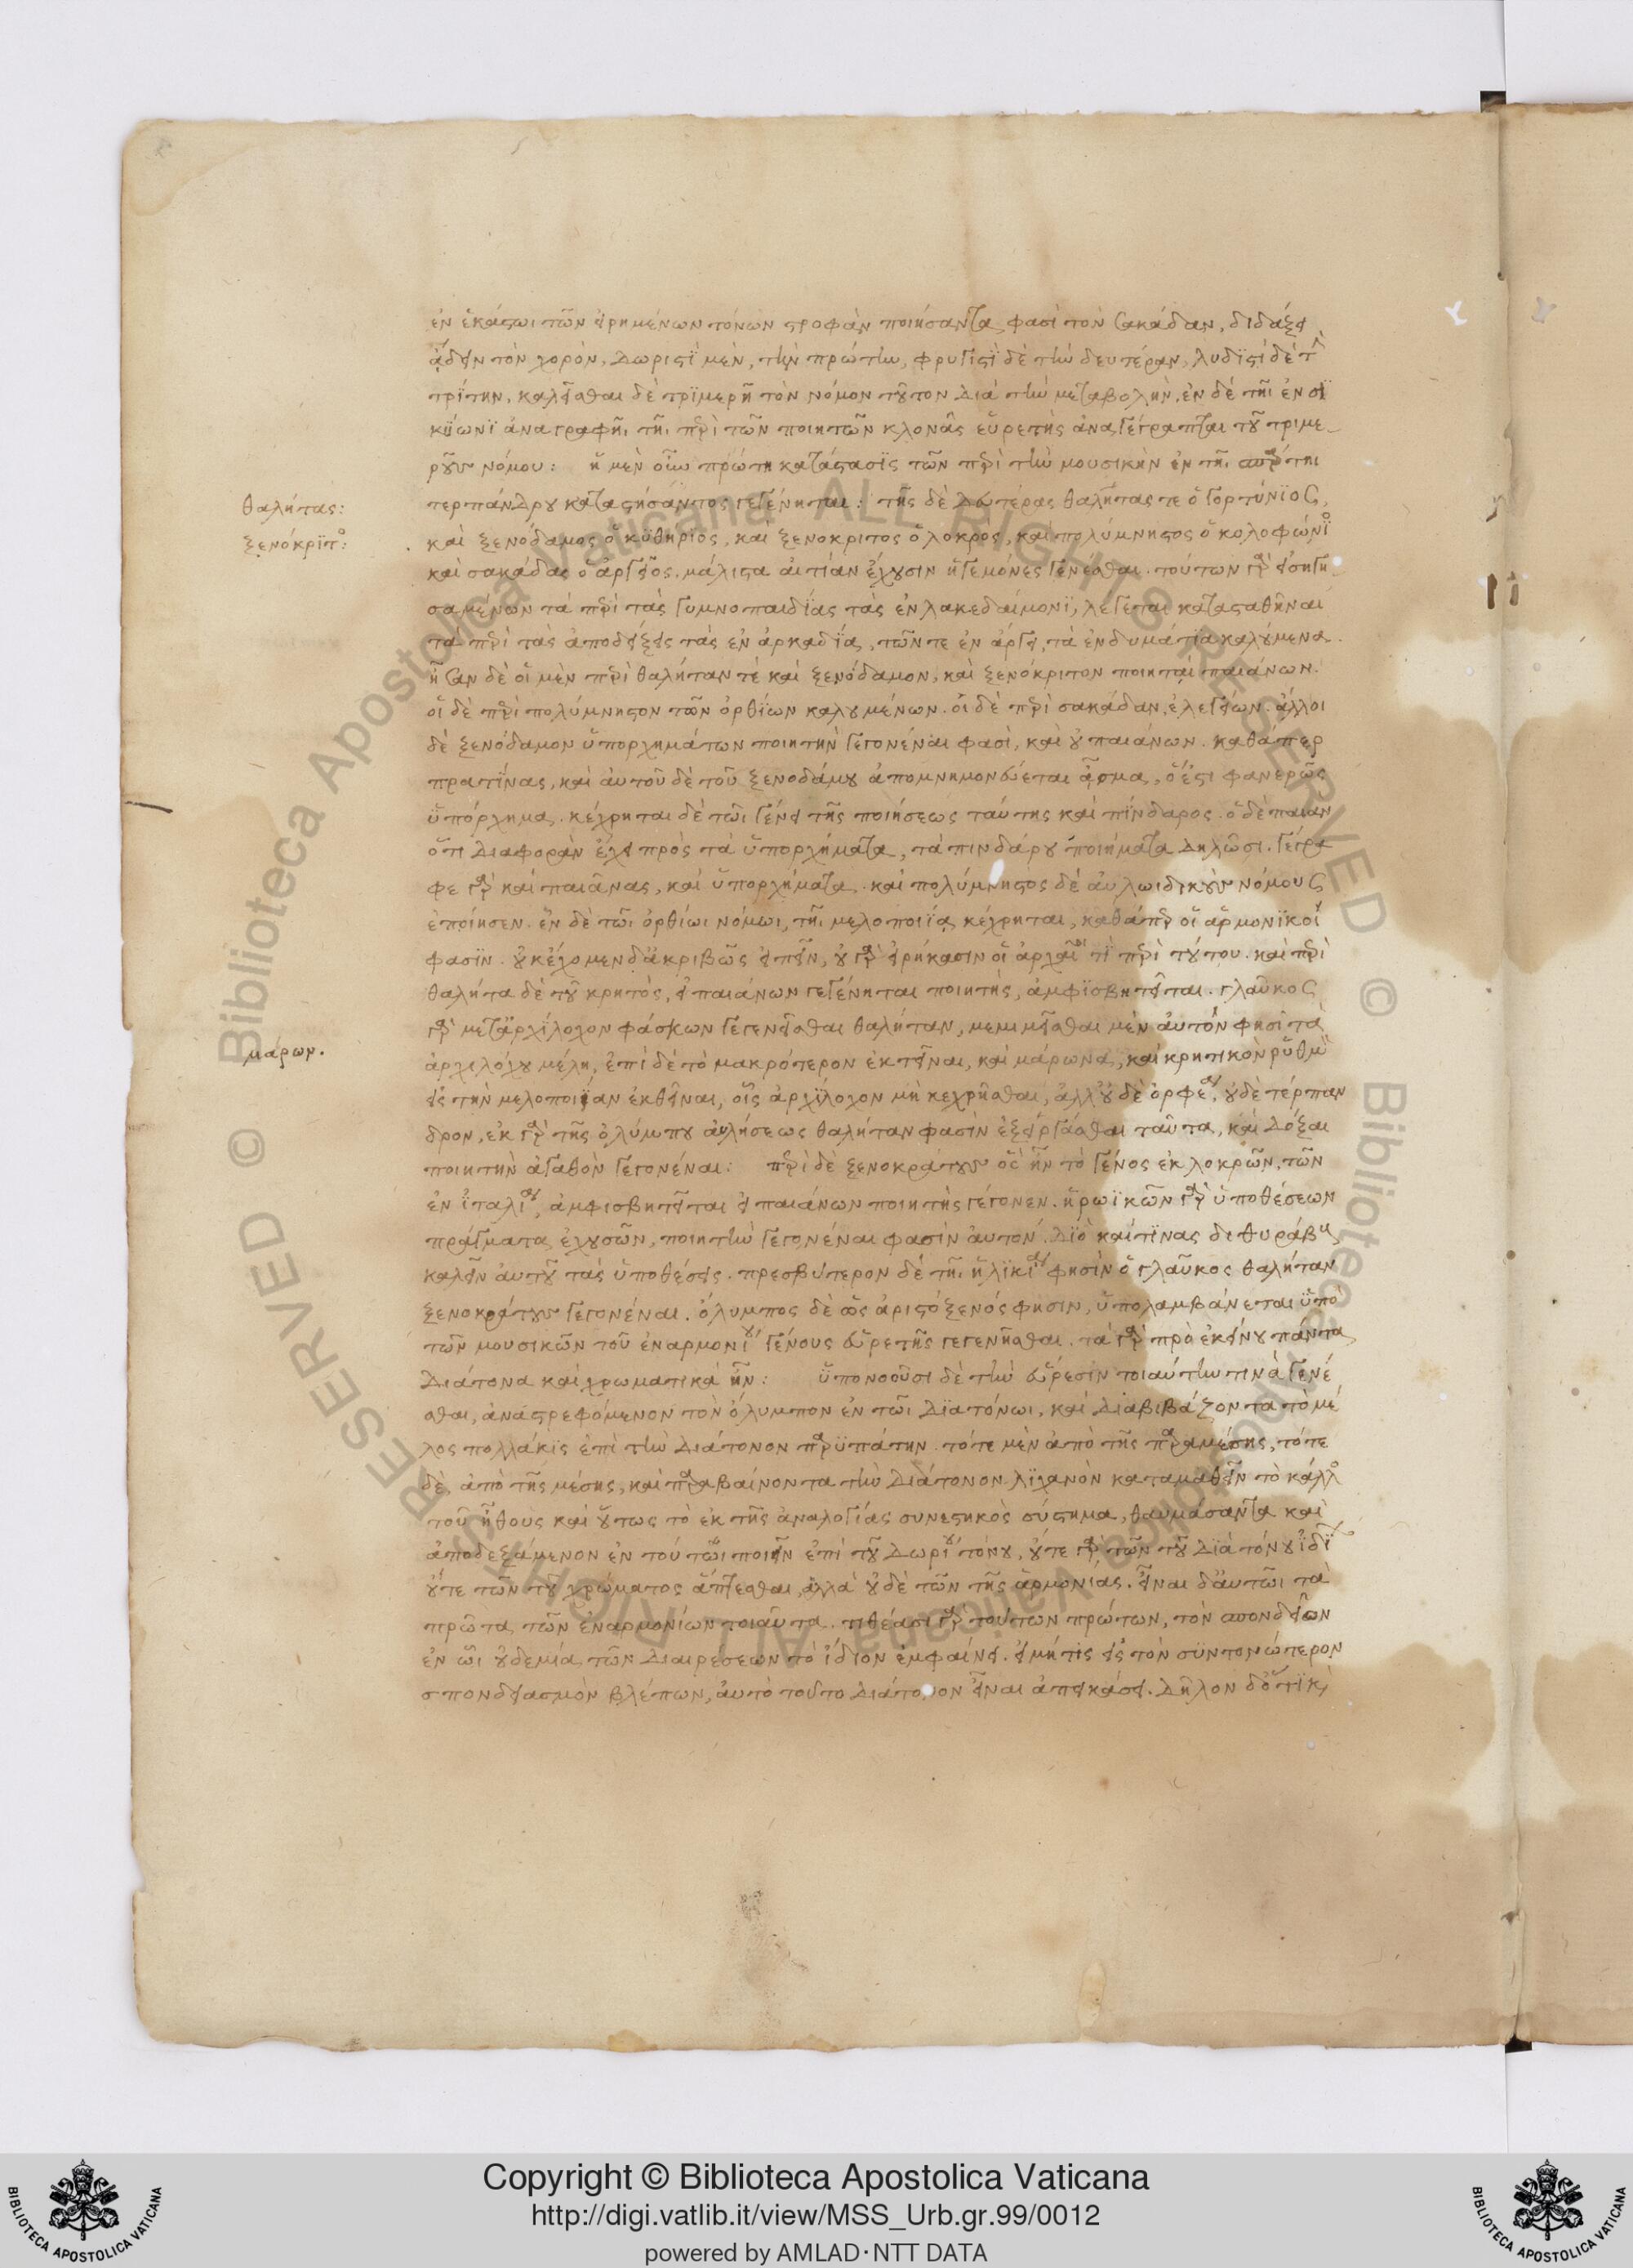 ἐν ἑκάστωι τῶν εἰρημένων τόνων στροφὰν ποιήσαντα φασὶ τὸν σακάδαν, διδάξει
ᾄδειν τὸν χορὸν, δωριστὶ μὲν, τὴν πρώτην, φρυγιστὶ δὲ τὴν δευτέραν, λυδιστὶ δὲ τὴν
τρίτην, καλεῖσθαι δὲ τριμερῆ τὸν νόμον τοῦτον διὰ τὴν μεταβολὴν. ἐν δὲ τῆι ἐν σι
κυωνι ἀναγραφῆι τῆι περὶ τῶν ποιητῶν κλονᾶς εὑρετὴς ἀναγέγραπται τοῦ τριμε
ροῦς νόμου: ἡ μὲν οὖν πρώτη κατάστασις τῶν περὶ τὴν μουσικὴν ἐν τῆι σπάρτηι
τερπάνδρου καταστήσαντος γεγένηται: τῆς δὲ δευτέρας θαλήτας τε ὁ γορτύνιος,
θαλήτας:
καὶ ξενόδαμος ὁ κυθήριος, καὶ ξενόκριτος ὁ λοκρὸς, καὶ πολύμνηστος ὁ κολοφώνιος
ξενόκριτος:
καὶ σακάδας ὁ ἀργεῖος. μάλιστα αἰτίαν ἔχουσιν ἡγεμόνες γενέσθαι. τούτων γὰρ εἰσηγη
σαμένων τὰ περὶ τὰς γυμνοπαιδίας τὰς ἐν λακεδαίμονι, λέγεται κατασταθῆναι
τὰ περὶ τὰς ἀποδείξεις τὰς ἐν ἀρκαδίαι, τῶν τε ἐν ἄργει, τὰ ἐνδυμάτια καλούμενα.
ἦσαν δὲ οἱ μὲν περὶ θαλήταν τὲ καὶ ξενόδαμον, καὶ ξενόκριτον ποιηταὶ παιάνων.
οἱ δὲ περὶ πολύμνηστον τῶν ὀρθίων καλουμένων. οἱ δὲ περὶ σακάδαν, ἐλεγείων. ἄλλοι
δὲ ξενόδαμον ὑπορχημάτων ποιητὴν γεγονέναι φασὶ, καὶ οὐ παιάνων. καθάπερ
πρατίνας, καὶ αὐτοῦ δὲ τοῦ ξενοδάμου ἀπομνημονεύεται ᾆσμα, ὅ ἐστι φανερῶς
ὑπόρχημα. κέχρηται δὲ τῶι γένει τῆς ποιήσεως ταύτης καὶ πίνδαρος. ὁ δὲ παιαν
ὅτι διαφορὰν ἔχει πρὸς τὰ ὑπορχήματα, τὰ πινδάρου ποιήματα δηλώσει. γέγρα
φε γὰρ καὶ παιᾶνας, καὶ ὑπορχήματα. καὶ πολύμνηστος δὲ αὐλωιδικοὺς νόμους
ἐποίησεν. ἐν δὲ τῶι ὀρθίωι νόμωι, τῆι μελοποιίαι κέχρηται, καθάπερ οἱ ἁρμονικοὶ
φασιν. οὐκ ἔχομεν δ'ἀκριβῶς εἰπεῖν, οὐ γὰρ εἰρήκασιν οἱ ἀρχαῖοι τὶ περὶ τούτου. καὶ περὶ
θαλήτα δὲ τοῦ κρητὸς, εἰ παιάνων γεγένηται ποιητὴς, ἀμφισβητεῖται. γλαῦκος
γὰρ μετ'ἀρχίλοχον φάσκων γεγενεῖσθαι θαλήταν, μεμιμεῖσθαι μὲν αὐτὸν φησὶ τὰ
ἀρχιλόχου μέλη, ἐπὶ δὲ τὸ μακρότερον ἐκτεῖναι, καὶ μάρωνα, καὶ κρητικὸν ῥυθμὸν
μάρων.
εἰς τὴν μελοποιίαν ἐκθεῖναι, οἷς ἀρχίλοχον μὴ κεχρῆσθαι, ἀλλ'οὐδὲ ὀρφέα, οὐδὲ τέρπαν
δρον, ἐκ γὰρ τῆς ὀλύμπου αὐλήσεως θαλήταν φασὶν ἐξειργάσθαι ταῦτα, καὶ δόξαι
ποιητὴν ἀγαθὸν γεγονέναι: περὶ δὲ ξενοκράτους ὃς ἦν τὸ γένος ἐκ λοκρῶν, τῶν
ἐν ἰταλίαι, ἀμφισβητεῖται εἰ παιάνων ποιητὴς γέγονεν. ἡρωϊκῶν γὰρ ὑποθέσεων
πράγματα ἐχουσῶν, ποιητὴν γεγονέναι φασὶν αὐτόν. διὸ καί τινας διθυράμβους
καλεῖν αὐτοῦ τὰς ὑποθέσεις. πρεσβύτερον δὲ τῆι ἡλικίαι φησὶν ὁ γλαῦκος θαλήταν
ξενοκράτους γεγονέναι. ὄλυμπος δὲ ὡς ἀριστόξενός φησιν, ὑπολαμβάνεται ὑπὸ
τῶν μουσικῶν τοῦ ἐναρμονίου γένους εὑρετὴς γεγενῆσθαι. τὰ γὰρ πρὸ ἐκείνου πάντα
διάτονα καὶ χρωματικὰ ἦν: ὑπονοοῦσι δὲ τὴν εὕρεσιν τοιαύτην τινὰ γενέ
σθαι, ἀναστρεφόμενον τὸν ὄλυμπον ἐν τῶι διατόνωι, καὶ διαβιβάζοντα τὸ μέ
λος πολλάκις ἐπὶ τὴν διάτονον παρυπάτην. τότε μὲν ἀπὸ τῆς παραμέσης, τότε
δὲ, ἀπὸ τῆς μέσης, καὶ παραβαίνοντα τὴν διάτονον λιχανὸν καταμαθεῖν τὸ κάλλος
τοῦ ἤθους καὶ οὕτως τὸ ἐκ τῆς ἀναλογίας συνεστηκὸς σύστημα, θαυμάσαντα καὶ
ἀποδεξάμενον ἐν τούτωι ποιεῖν ἐπὶ τοῦ δωρίου τόνου, οὔτε γὰρ τῶν τοῦ διατόνου ἰδίων
οὔτε τῶν τοῦ χρώματος ἅπτεσθαι, ἀλλὰ οὐδὲ τῶν τῆς ἁρμονίας. εἶναι δ'αὐτῶι τὰ
πρῶτα τῶν ἐναρμονίων τοιαῦτα. τιθέασι γὰρ τούτων πρώτων, τὸν σπονδεῖον
ἐν ὧι οὐδεμία τῶν διαιρέσεων τὸ ἴδιον ἐμφαίνει. εἰ μή τις εἰς τὸν συντονώτερον
σπονδειασμὸν βλέπων, αὐτὸ τοῦτο διάτονον εἶναι ἀπεικάσει. δῆλον δ'ὅτι καὶ
Copyright © Biblioteca Apostolica Vaticana
http://digi.vatlib.it/view/MSS_Urb.gr.99/0012
powered by AMLAD·NTT DATA